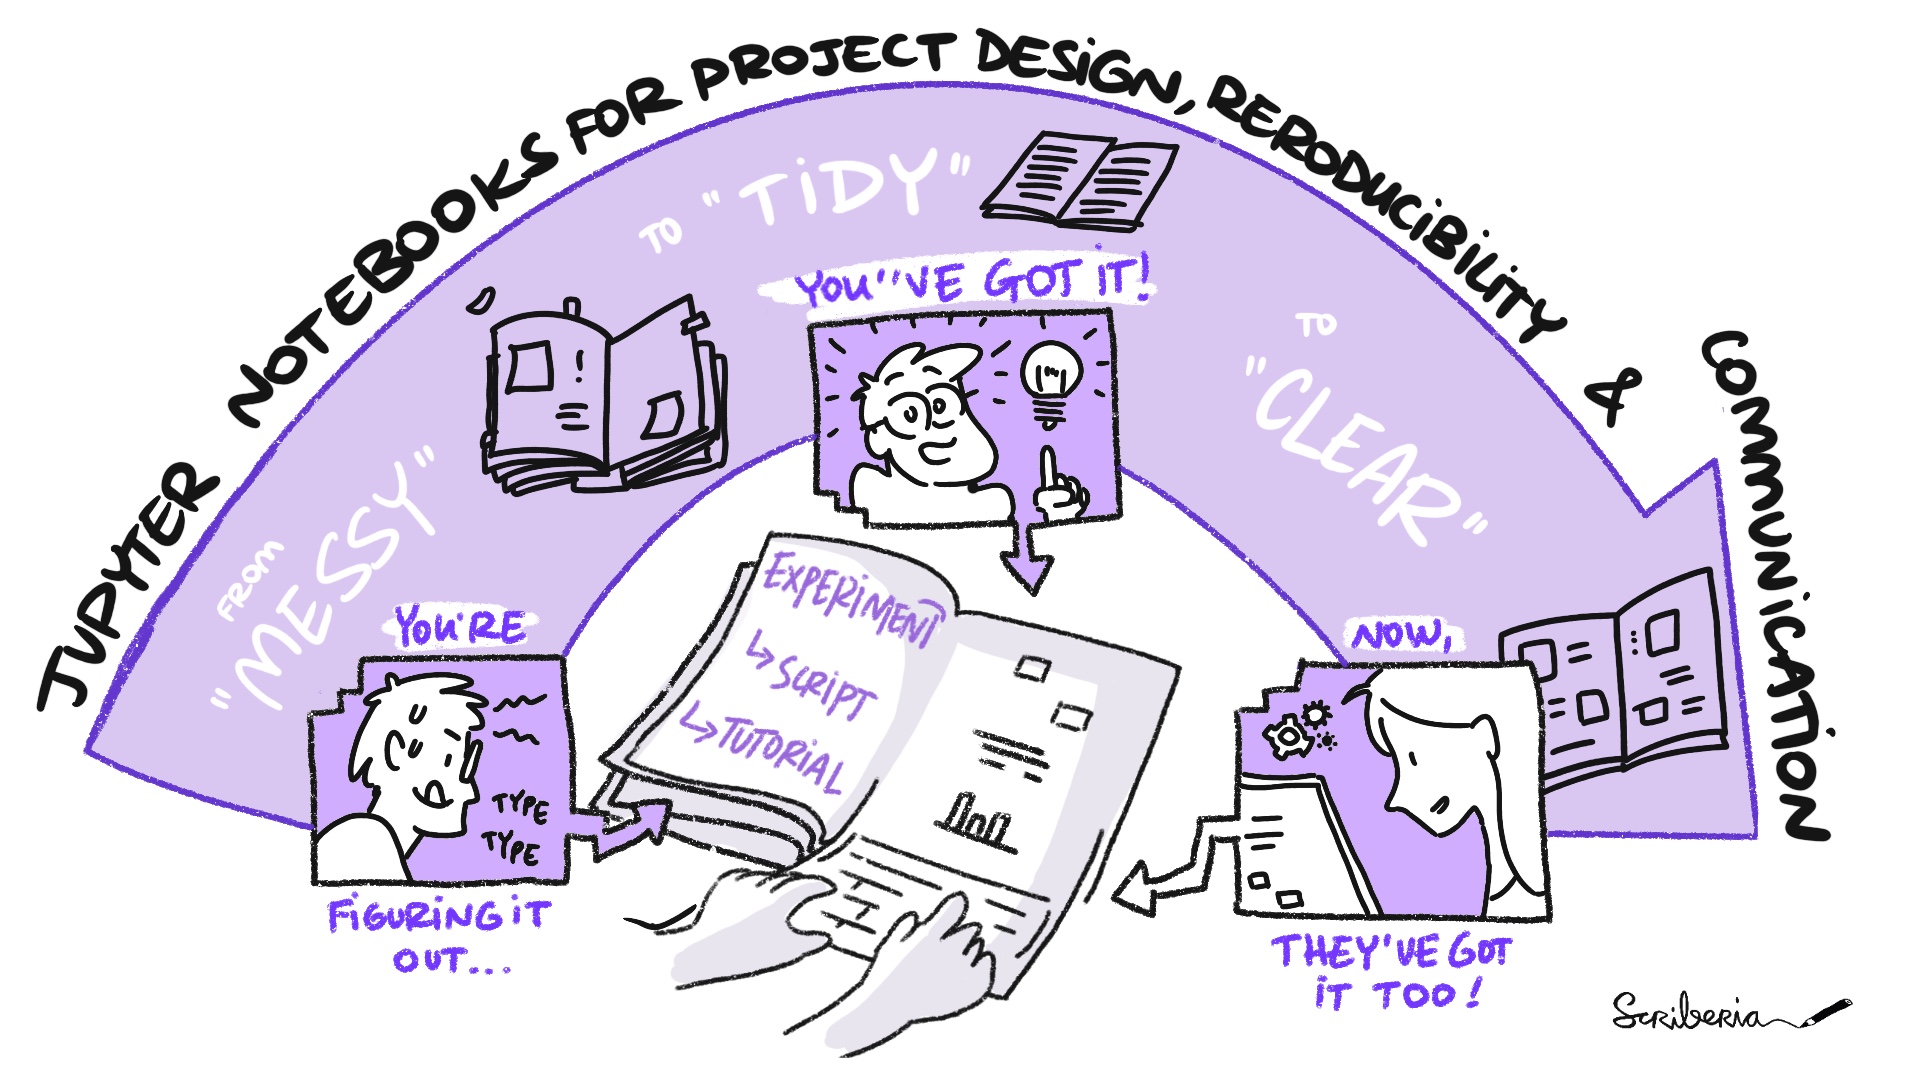 JUPYTER NOTEBOOKS FOR PROJECT DESIGN, RERODUCIBILITY & COMMUNICATION
FROM
"MESSY"
TO "TIDY"
TO
"CLEAR"
YOU'RE
TYPE
TYPE
FIGURING IT
OUT...
YOU''VE GOT IT!
EXPERIMENT
SCRIPT
TUTORIAL
NOW,
THEY'VE GOT
IT TOO!
Scriberia